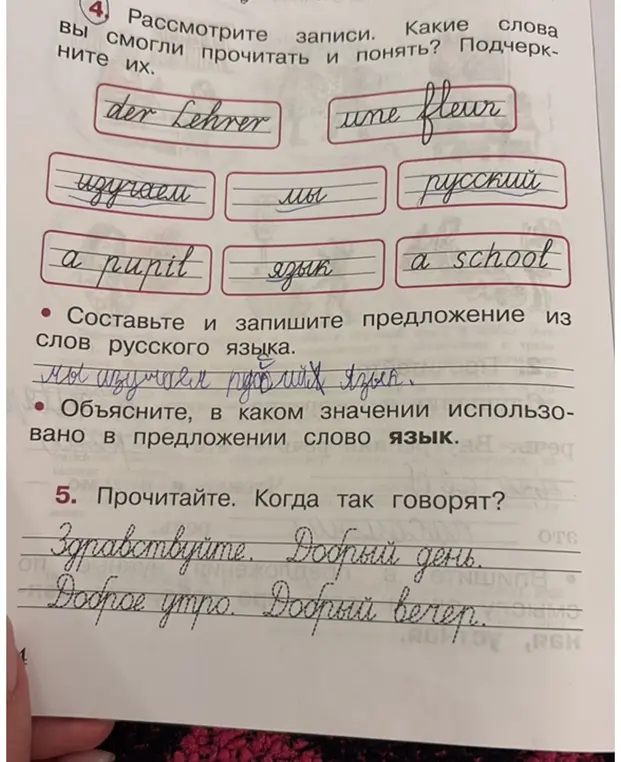 4. Рассмотрите записи. Какие слова
вы смогли прочитать и понять? Подчерк-
ните их.
der Lehrer une fleur
изучаем мы русский
a pupil язык a school
• Составьте и запишите предложение из
слов русского языка.
мы изучаем русский язык.
• Объясните, в каком значении использо-
вано в предложении слово язык.
5. Прочитайте. Когда так говорят?
Здравствуйте. Добрый день.
Доброе утро. Добрый вечер.
4